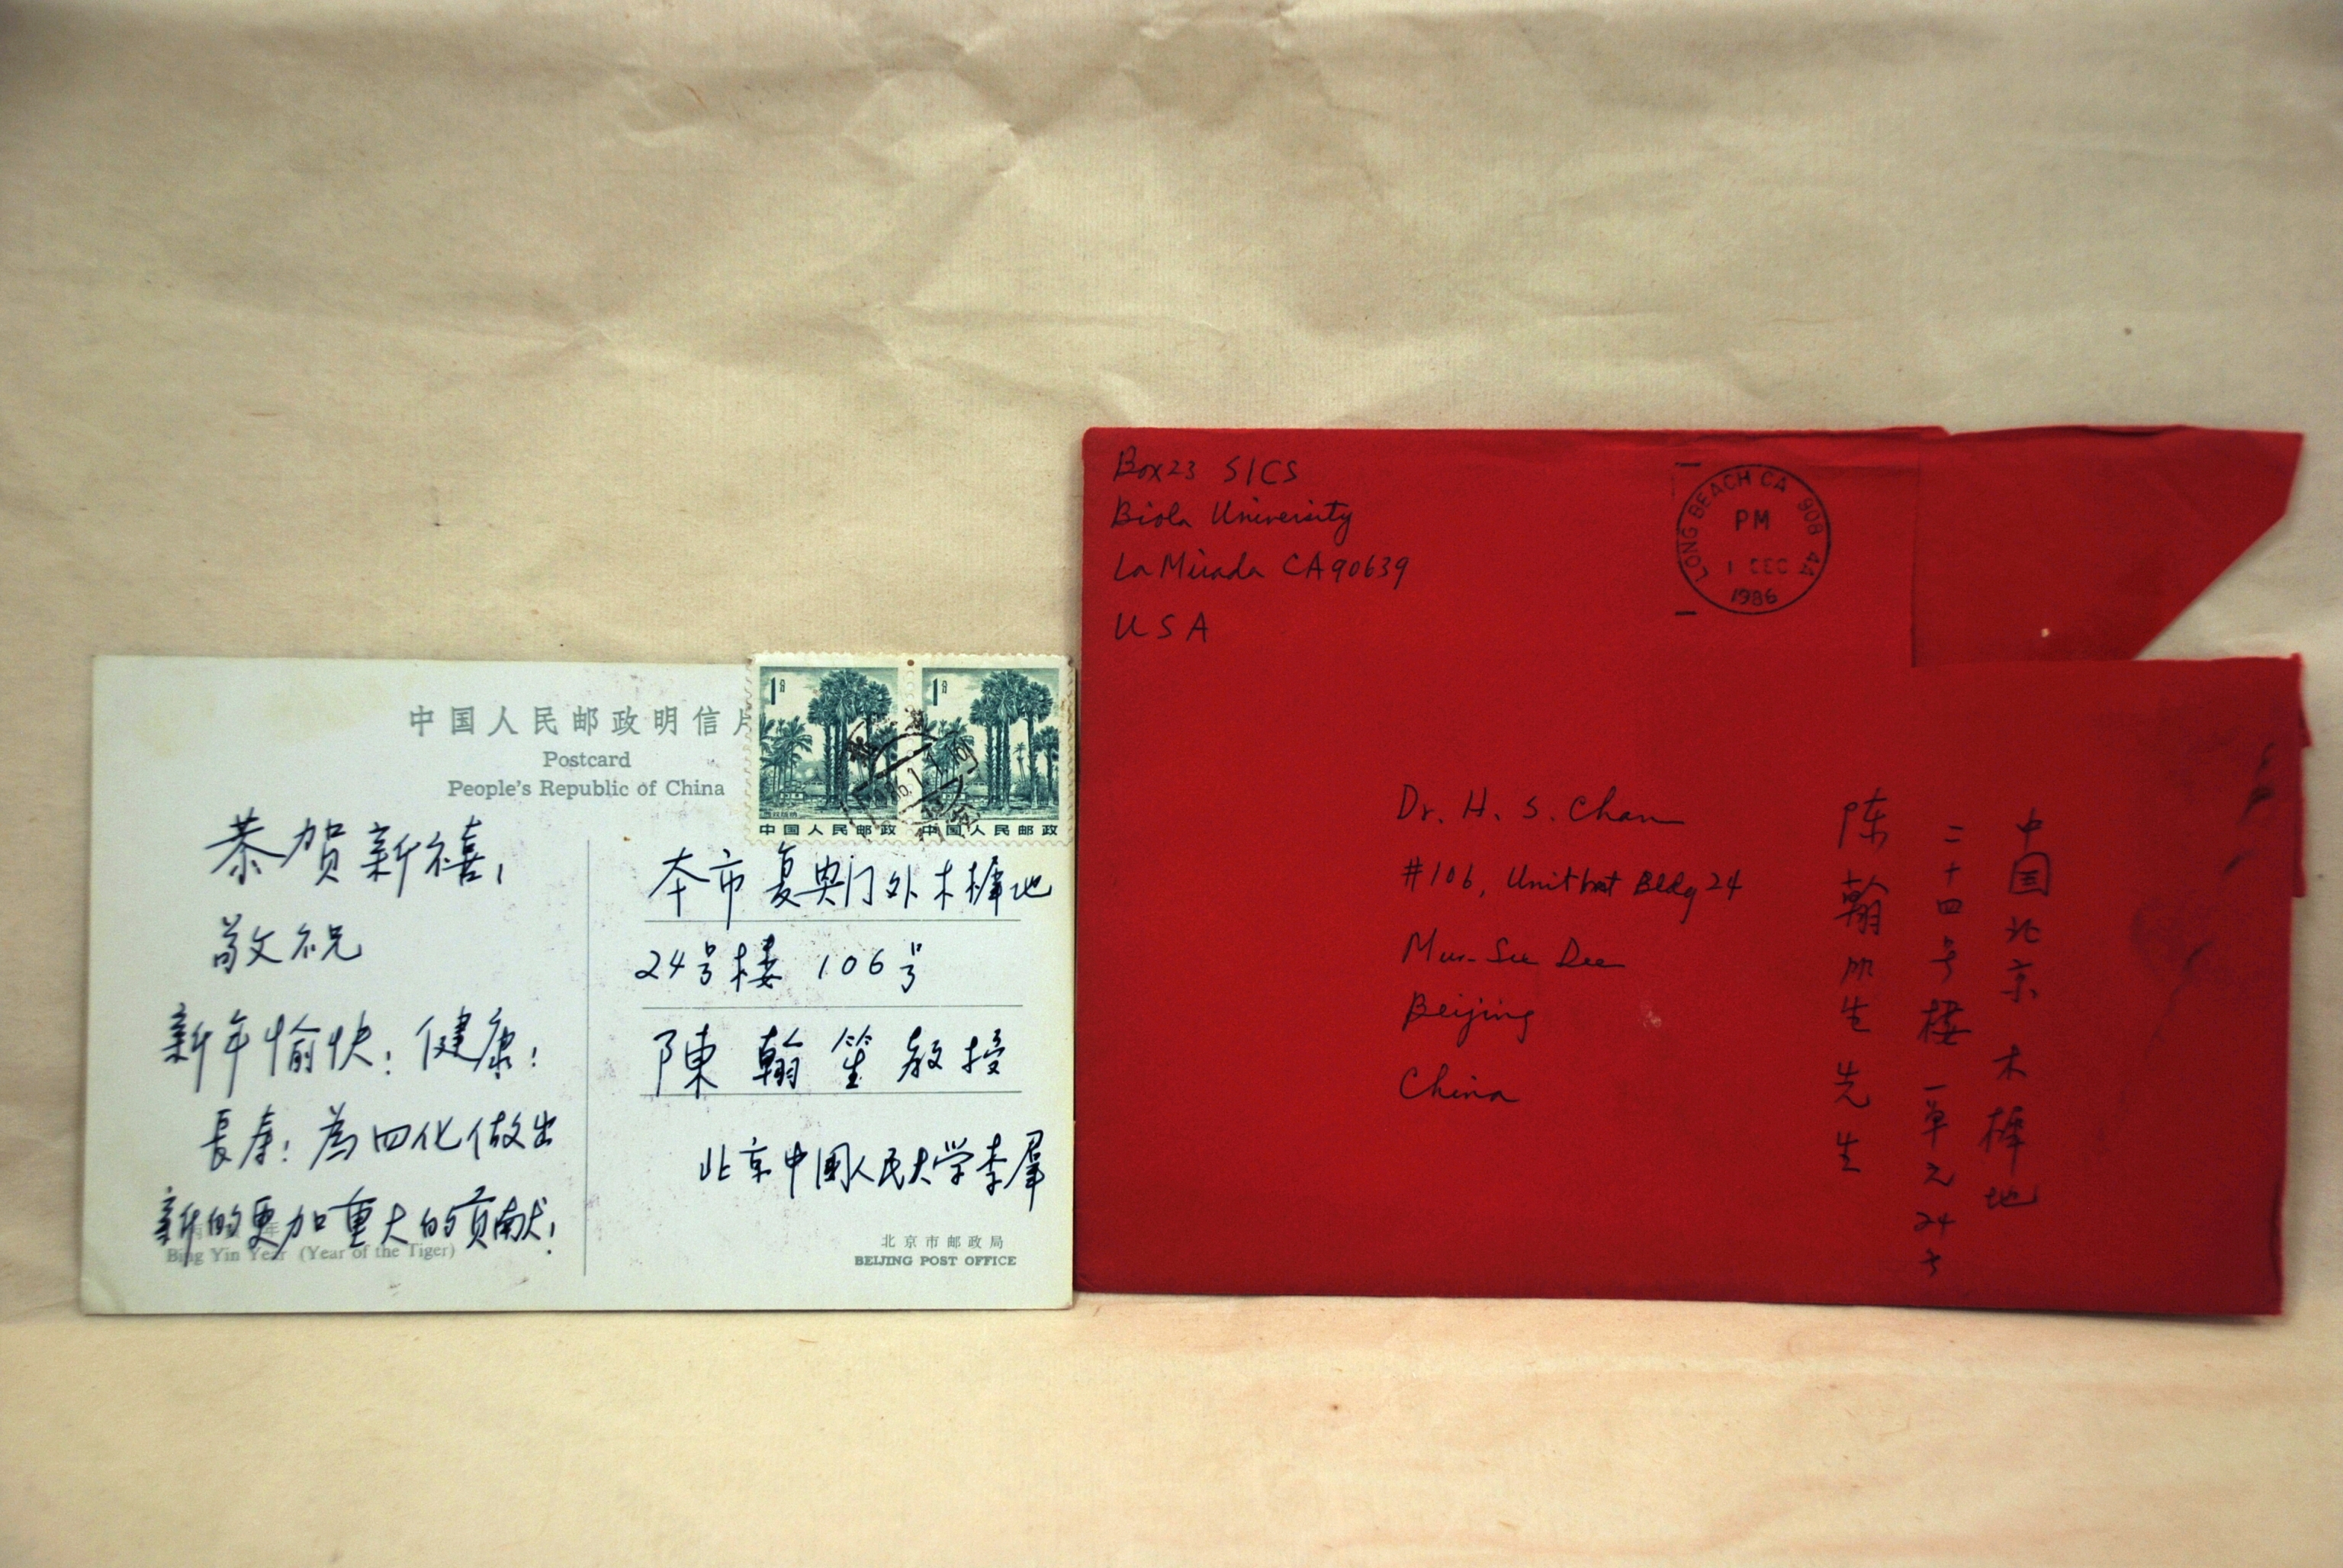 中国人民邮政明信片
Postcard
People's Republic of China
恭贺新禧!
敬祝
新年愉快!健康!
長寿!為四化做出
新的更加重大的贡献!
Bing Yin Year (Year of the Tiger)
1分
1分
中国人民邮政
中国人民邮政
本市复兴门外木樨地
24号楼 106号
陳翰笙教授
北京中國人民大学李羣
北京市邮政局
BEIJING POST OFFICE
Box 23 SICS
Biola University
La Mirada CA 90639
USA
LONG BEACH CA 908 4A
PM
1 DEC
1986
Dr. H. S. Chan
#106, Bldg 24
Mu-Su Dee
Beijing
China
中国北京木樨地
二十四号楼一单元24号
陈翰笙先生